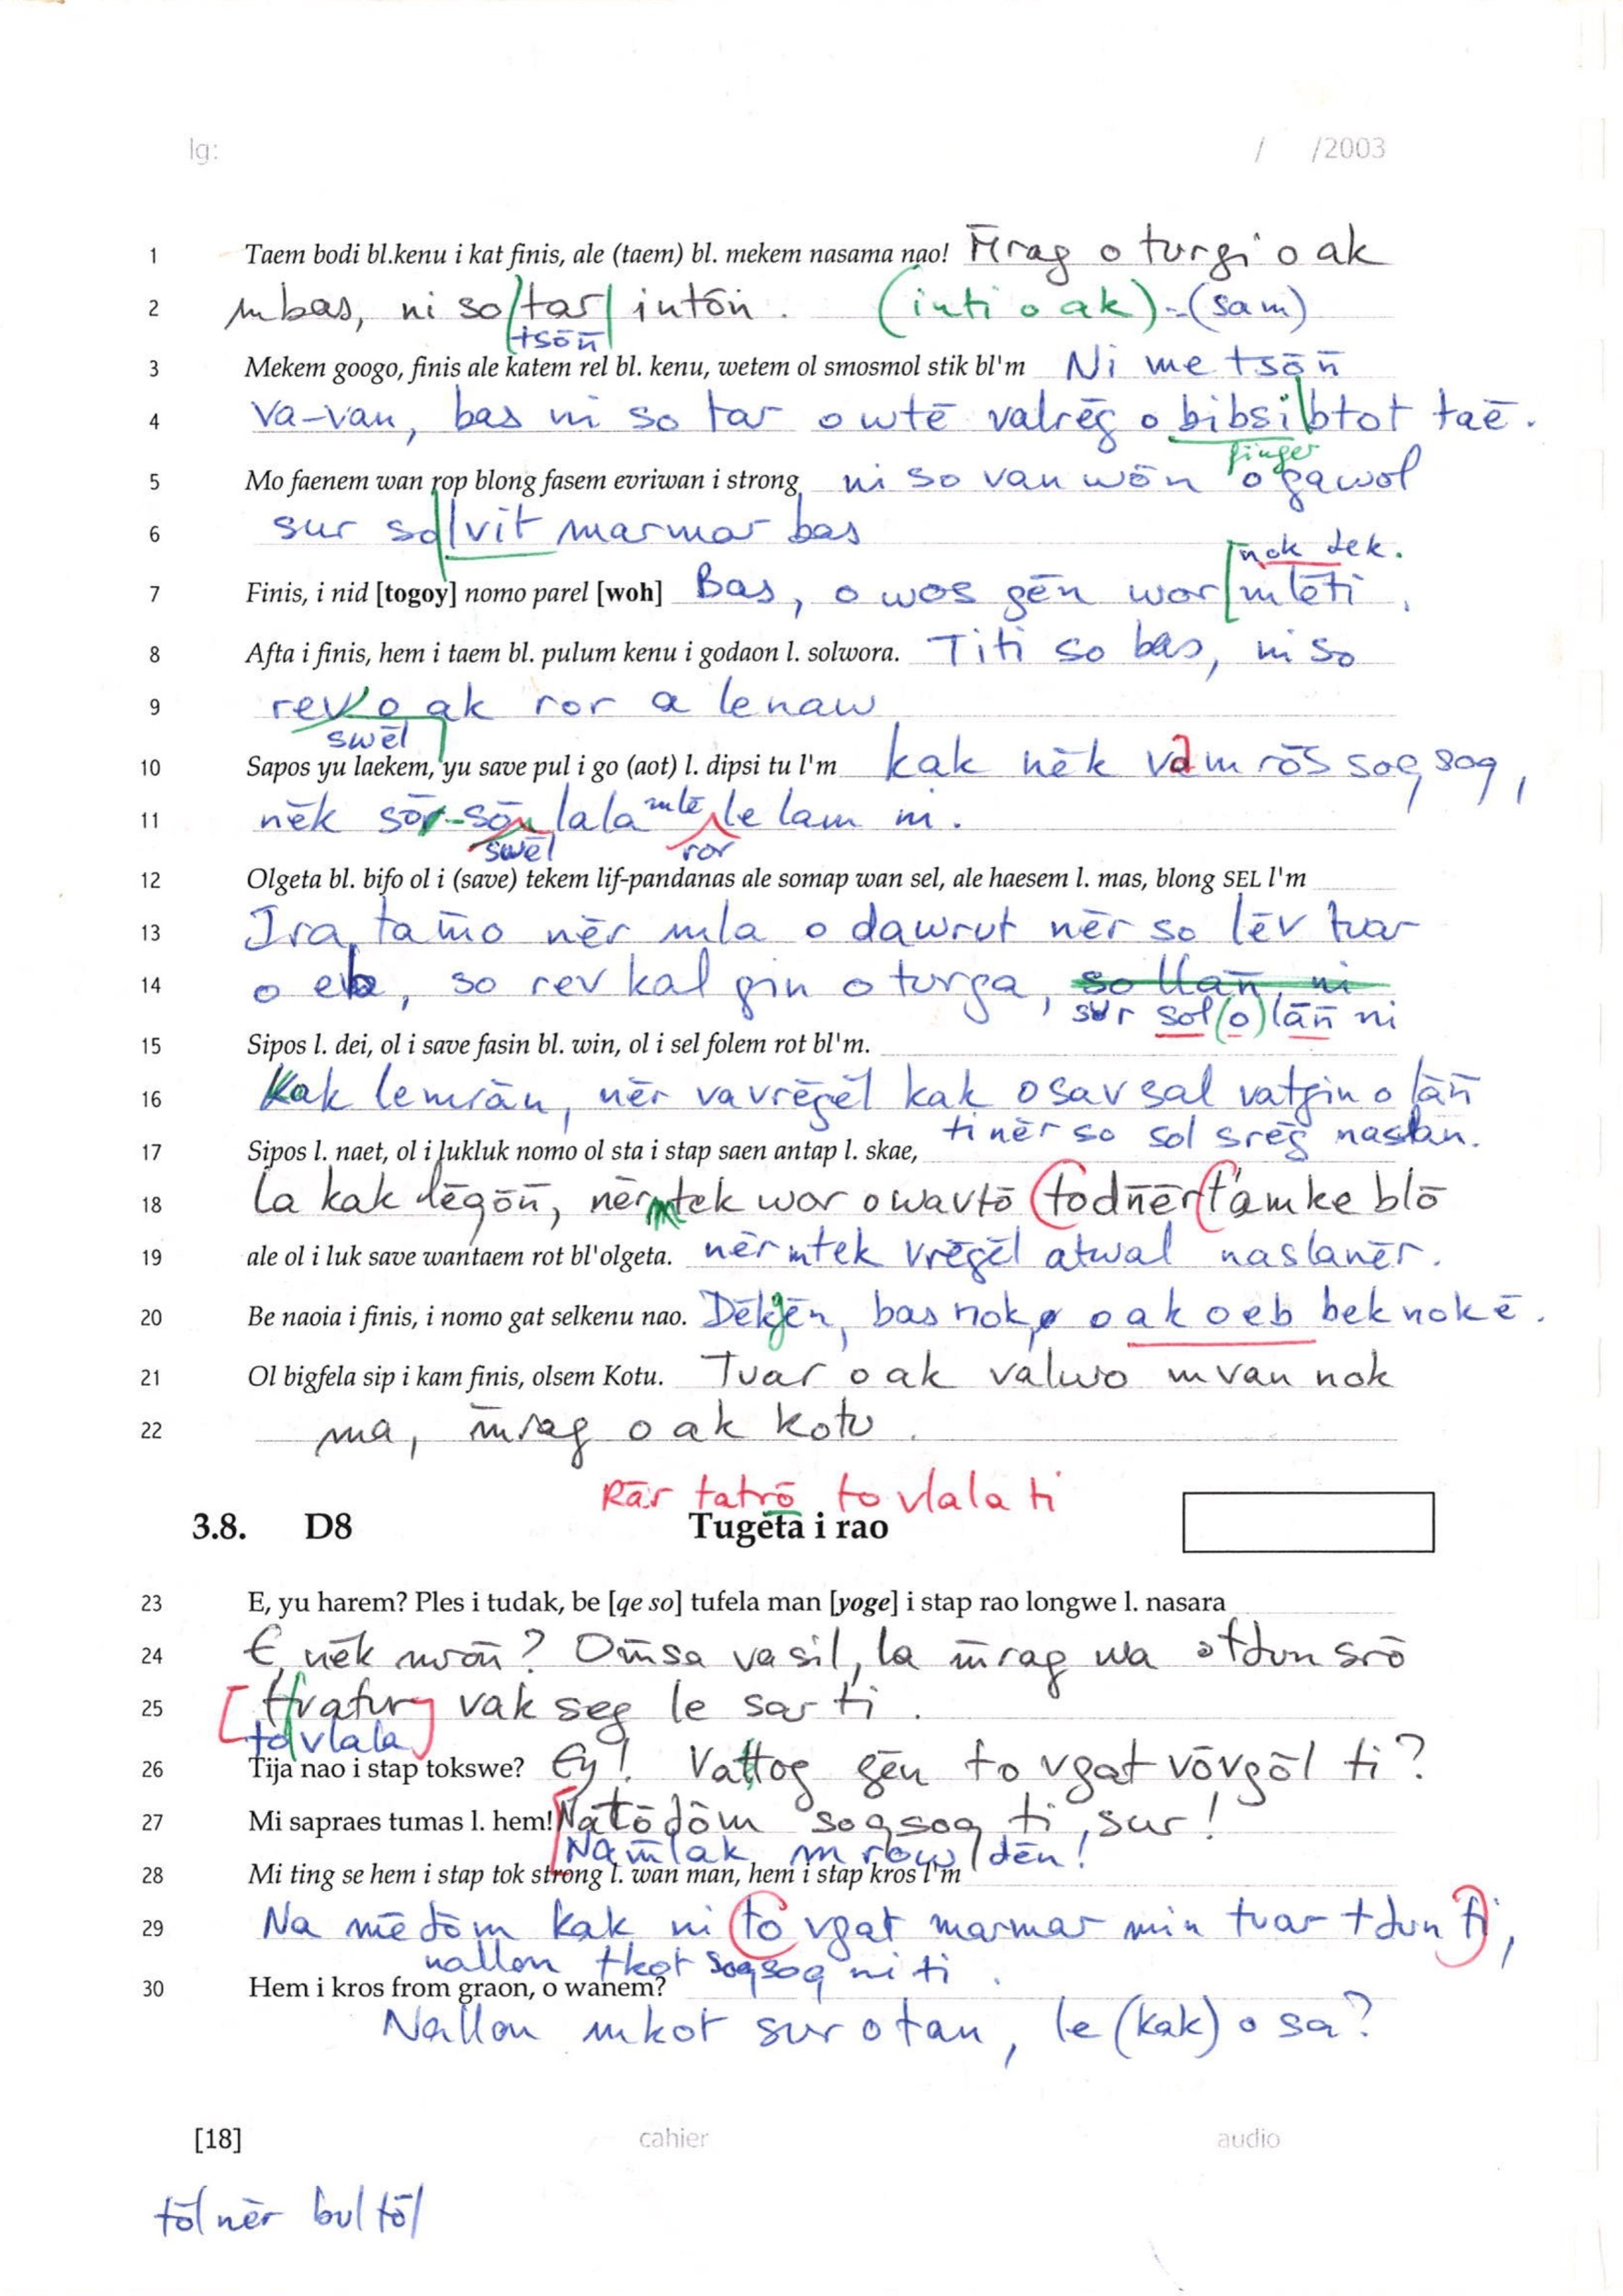 lg: / /2003
1 Taem bodi bl.kenu i kat finis, ale (taem) bl. mekem nasama nao! M̄rag o turgi o ak
2 mbas, ni so tar intōn. (inti o ak) = (sam)
tsōn̄
3 Mekem googo, finis ale katem rel bl. kenu, wetem ol smosmol stik bl'm Ni me tsōn̄
4 va-van, bas ni so tar o wtē valrēg o bibsibtot taē.
finger
5 Mo faenem wan rop blong fasem evriwan i strong ni so van wōn o gawol
6 sur so vit marmar bas
nok tek.
7 Finis, i nid [togoy] nomo parel [woh] Bas, o wos gēn wor mlēti.
8 Afta i finis, hem i taem bl. pulum kenu i godaon l. solwora. Titi so bas, ni so
9 rev o ak ror a lenaw
swēl
10 Sapos yu laekem, yu save pul i go (aot) l. dipsi tu l'm kak nēk vamrōs sogsog,
11 nēk sōr-sōn lala mlē le lam ni.
swēl ror
12 Olgeta bl. bifo ol i (save) tekem lif-pandanas ale somap wan sel, ale haesem l. mas, blong SEL l'm
13 Ira tam̄o nēr mla o dawrut nēr so lēv tvar
14 o eb, so rev kal gin o turga, so llan̄ ni
sur sol (o) lān̄ ni
15 Sipos l. dei, ol i save fasin bl. win, ol i sel folem rot bl'm.
16 Kak lemrān, nēr vavrēgēl kak o savsal vatgin o lān̄
ti nēr so sol srēg naslan.
17 Sipos l. naet, ol i lukluk nomo ol sta i stap saen antap l. skae,
18 La kak lēgōn̄, nēr mtek wor o wavtō todn̄ēr t'amke blō
19 ale ol i luk save wantaem rot bl'olgeta. nēr mtek vrēgēl atwal naslanēr.
20 Be naoia i finis, i nomo gat selkenu nao. Dēkgēn, bas nok o ak o eb bek nokē.
21 Ol bigfela sip i kam finis, olsem Kotu. Tvar o ak valwo mvan nok
22 ma, m̄rag o ak kotu.
Rār tatrō to vlala ti
3.8. D8 Tugeta i rao
23 E, yu harem? Ples i tudak, be [qe so] tufela man [yoge] i stap rao longwe l. nasara
24 E, nēk mrōn̄? Om̄sa vasil, la m̄rag wa o tdun srō
25 [tvatur] vak seg le sar ti.
to vlala
26 Tija nao i stap tokswe? Ey! Vattog gēn to vgat vōvgōl ti?
27 Mi sapraes tumas l. hem! Natōdōm sogsog ti, sur!
Nam̄lak mrow dēn!
28 Mi ting se hem i stap tok strong l. wan man, hem i stap kros l'm
29 Na mēdōm kak ni to vgat marmar min tvar tdun ti,
nallon tkot sogsog ni ti.
30 Hem i kros from graon, o wanem?
Nallon mkot sur o tan, le (kak) o sa?
[18] cahier audio
tōl nēr bul tōl